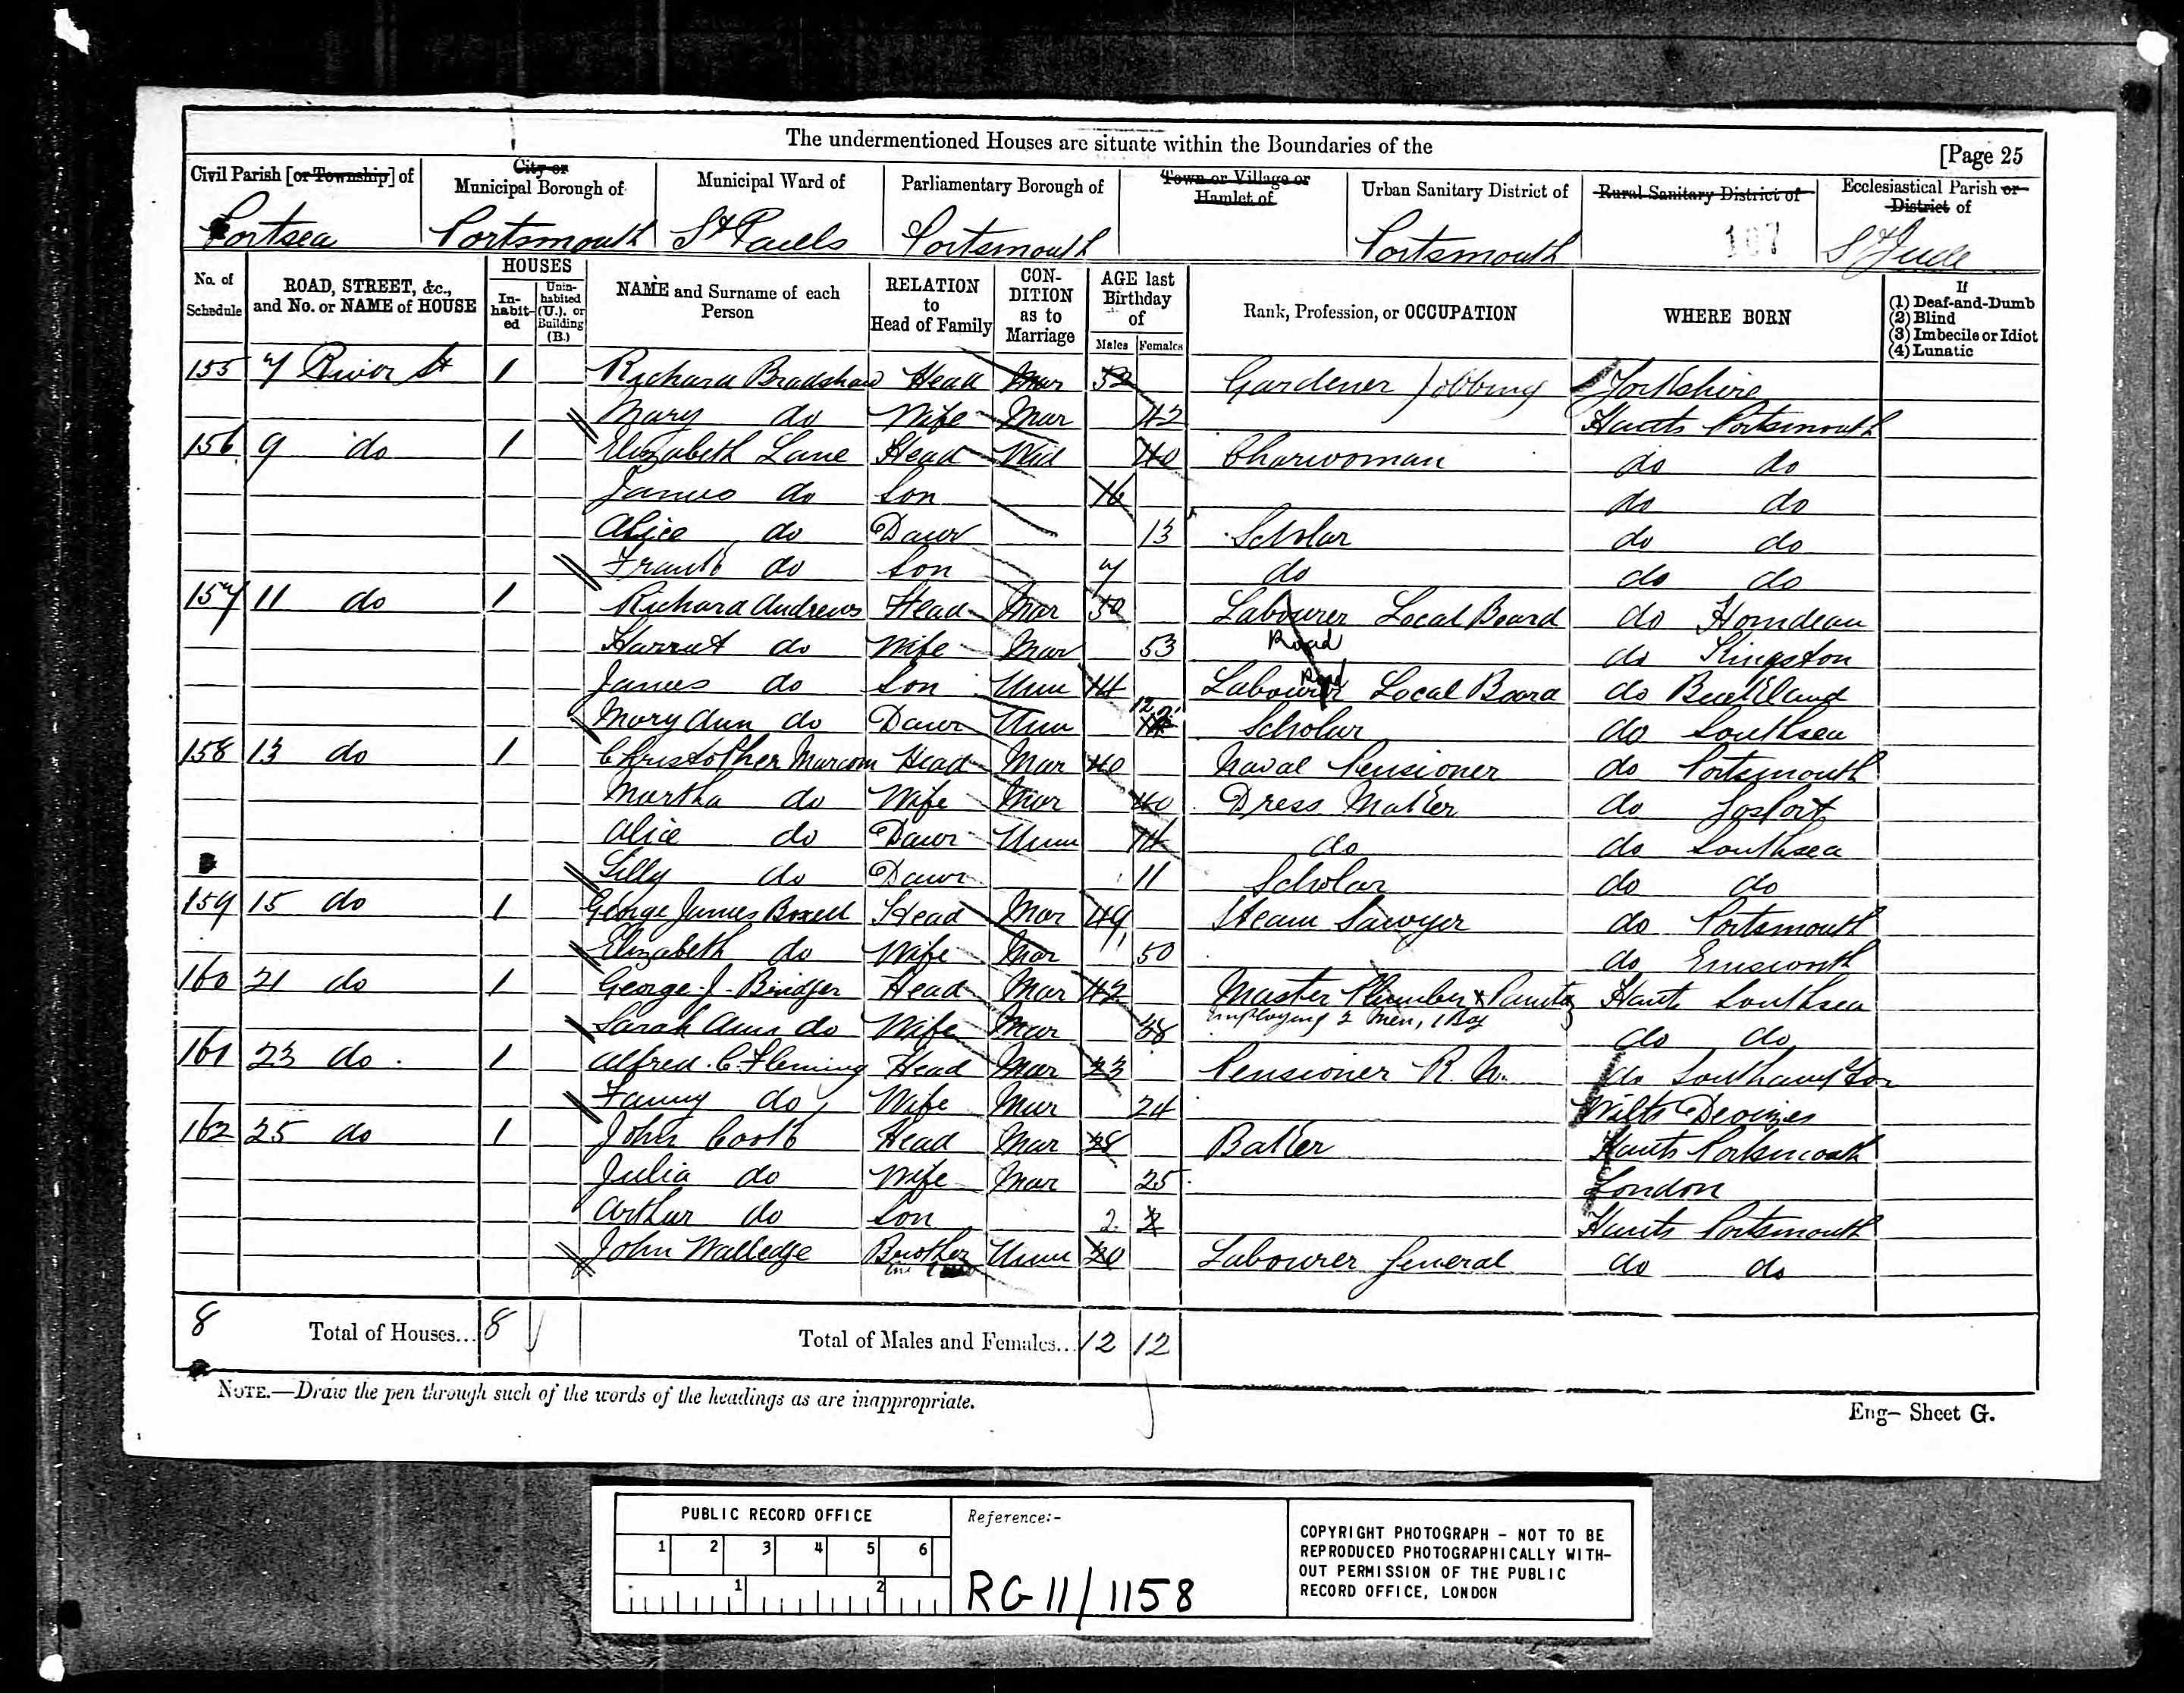 The undermentioned Houses are situate within the Boundaries of the
[Page 25
Civil Parish [or Township] of
City or Municipal Borough of
Municipal Ward of
Parliamentary Borough of
Town or Village or Hamlet of
Urban Sanitary District of
Rural Sanitary District of
Ecclesiastical Parish or District of
Portsea Portsmouth St Pauls Portsmouth Portsmouth 107 St Jude
No. of Schedule
ROAD, STREET, &c., and No. or NAME of HOUSE
HOUSES
In-habit-ed
Unin-habited (U.), or Building (B.)
NAME and Surname of each Person
RELATION to Head of Family
CON-DITION as to Marriage
AGE last Birthday of
Males Females
Rank, Profession, or OCCUPATION
WHERE BORN
If
(1) Deaf-and-Dumb
(2) Blind
(3) Imbecile or Idiot
(4) Lunatic
155 7 River St 1 Richard Bradshaw Head Mar 52 Gardener Jobbing Yorkshire
Mary do Wife Mar 42 Hants Portsmouth
156 9 do 1 Elizabeth Lane Head Wid 40 Charwoman do do
James do Son 16 do do
Alice do Daur 13 Scholar do do
Frank do Son 7 do do do
157 11 do 1 Richard Andrews Head Mar 50 Labourer Local Board do Horndean
Harriet do Wife Mar 53 Road do Kingston
James do Son Unm 14 Labourer Road Local Board do Buckland
Mary Ann do Daur Unm 12 Scholar do Southsea
158 13 do 1 Christopher Marcom Head Mar 40 Naval Pensioner do Portsmouth
Martha do Wife Mar 40 Dress Maker do Gosport
Alice do Daur Unm 14 do do Southsea
Lilly do Daur 11 Scholar do do
159 15 do 1 George James Boxell Head Mar 49 Steam Sawyer do Portsmouth
Elizabeth do Wife Mar 50 do Emsworth
160 21 do 1 George J. Bridger Head Mar 42 Master Plumber & Painter Hants Southsea
Sarah Ann do Wife Mar 38 Employing 2 Men, 1 Boy do do
161 23 do 1 Alfred C. Fleming Head Mar 23 Pensioner R. N. do Southampton
Fanny do Wife Mar 24 Wilts Devizes
162 25 do 1 John Cook Head Mar 28 Baker Hants Portsmouth
Julia do Wife Mar 25 London
Arthur do Son 2 2 Hants Portsmouth
John Walledge Brother in Law Unm 20 Labourer General do do
8 Total of Houses... 8 Total of Males and Females... 12 12
NOTE.—Draw the pen through such of the words of the headings as are inappropriate.
Eng- Sheet G.
PUBLIC RECORD OFFICE
1 2 3 4 5 6
1 2
Reference:-
RG 11/1158
COPYRIGHT PHOTOGRAPH - NOT TO BE
REPRODUCED PHOTOGRAPHICALLY WITH-
OUT PERMISSION OF THE PUBLIC
RECORD OFFICE, LONDON